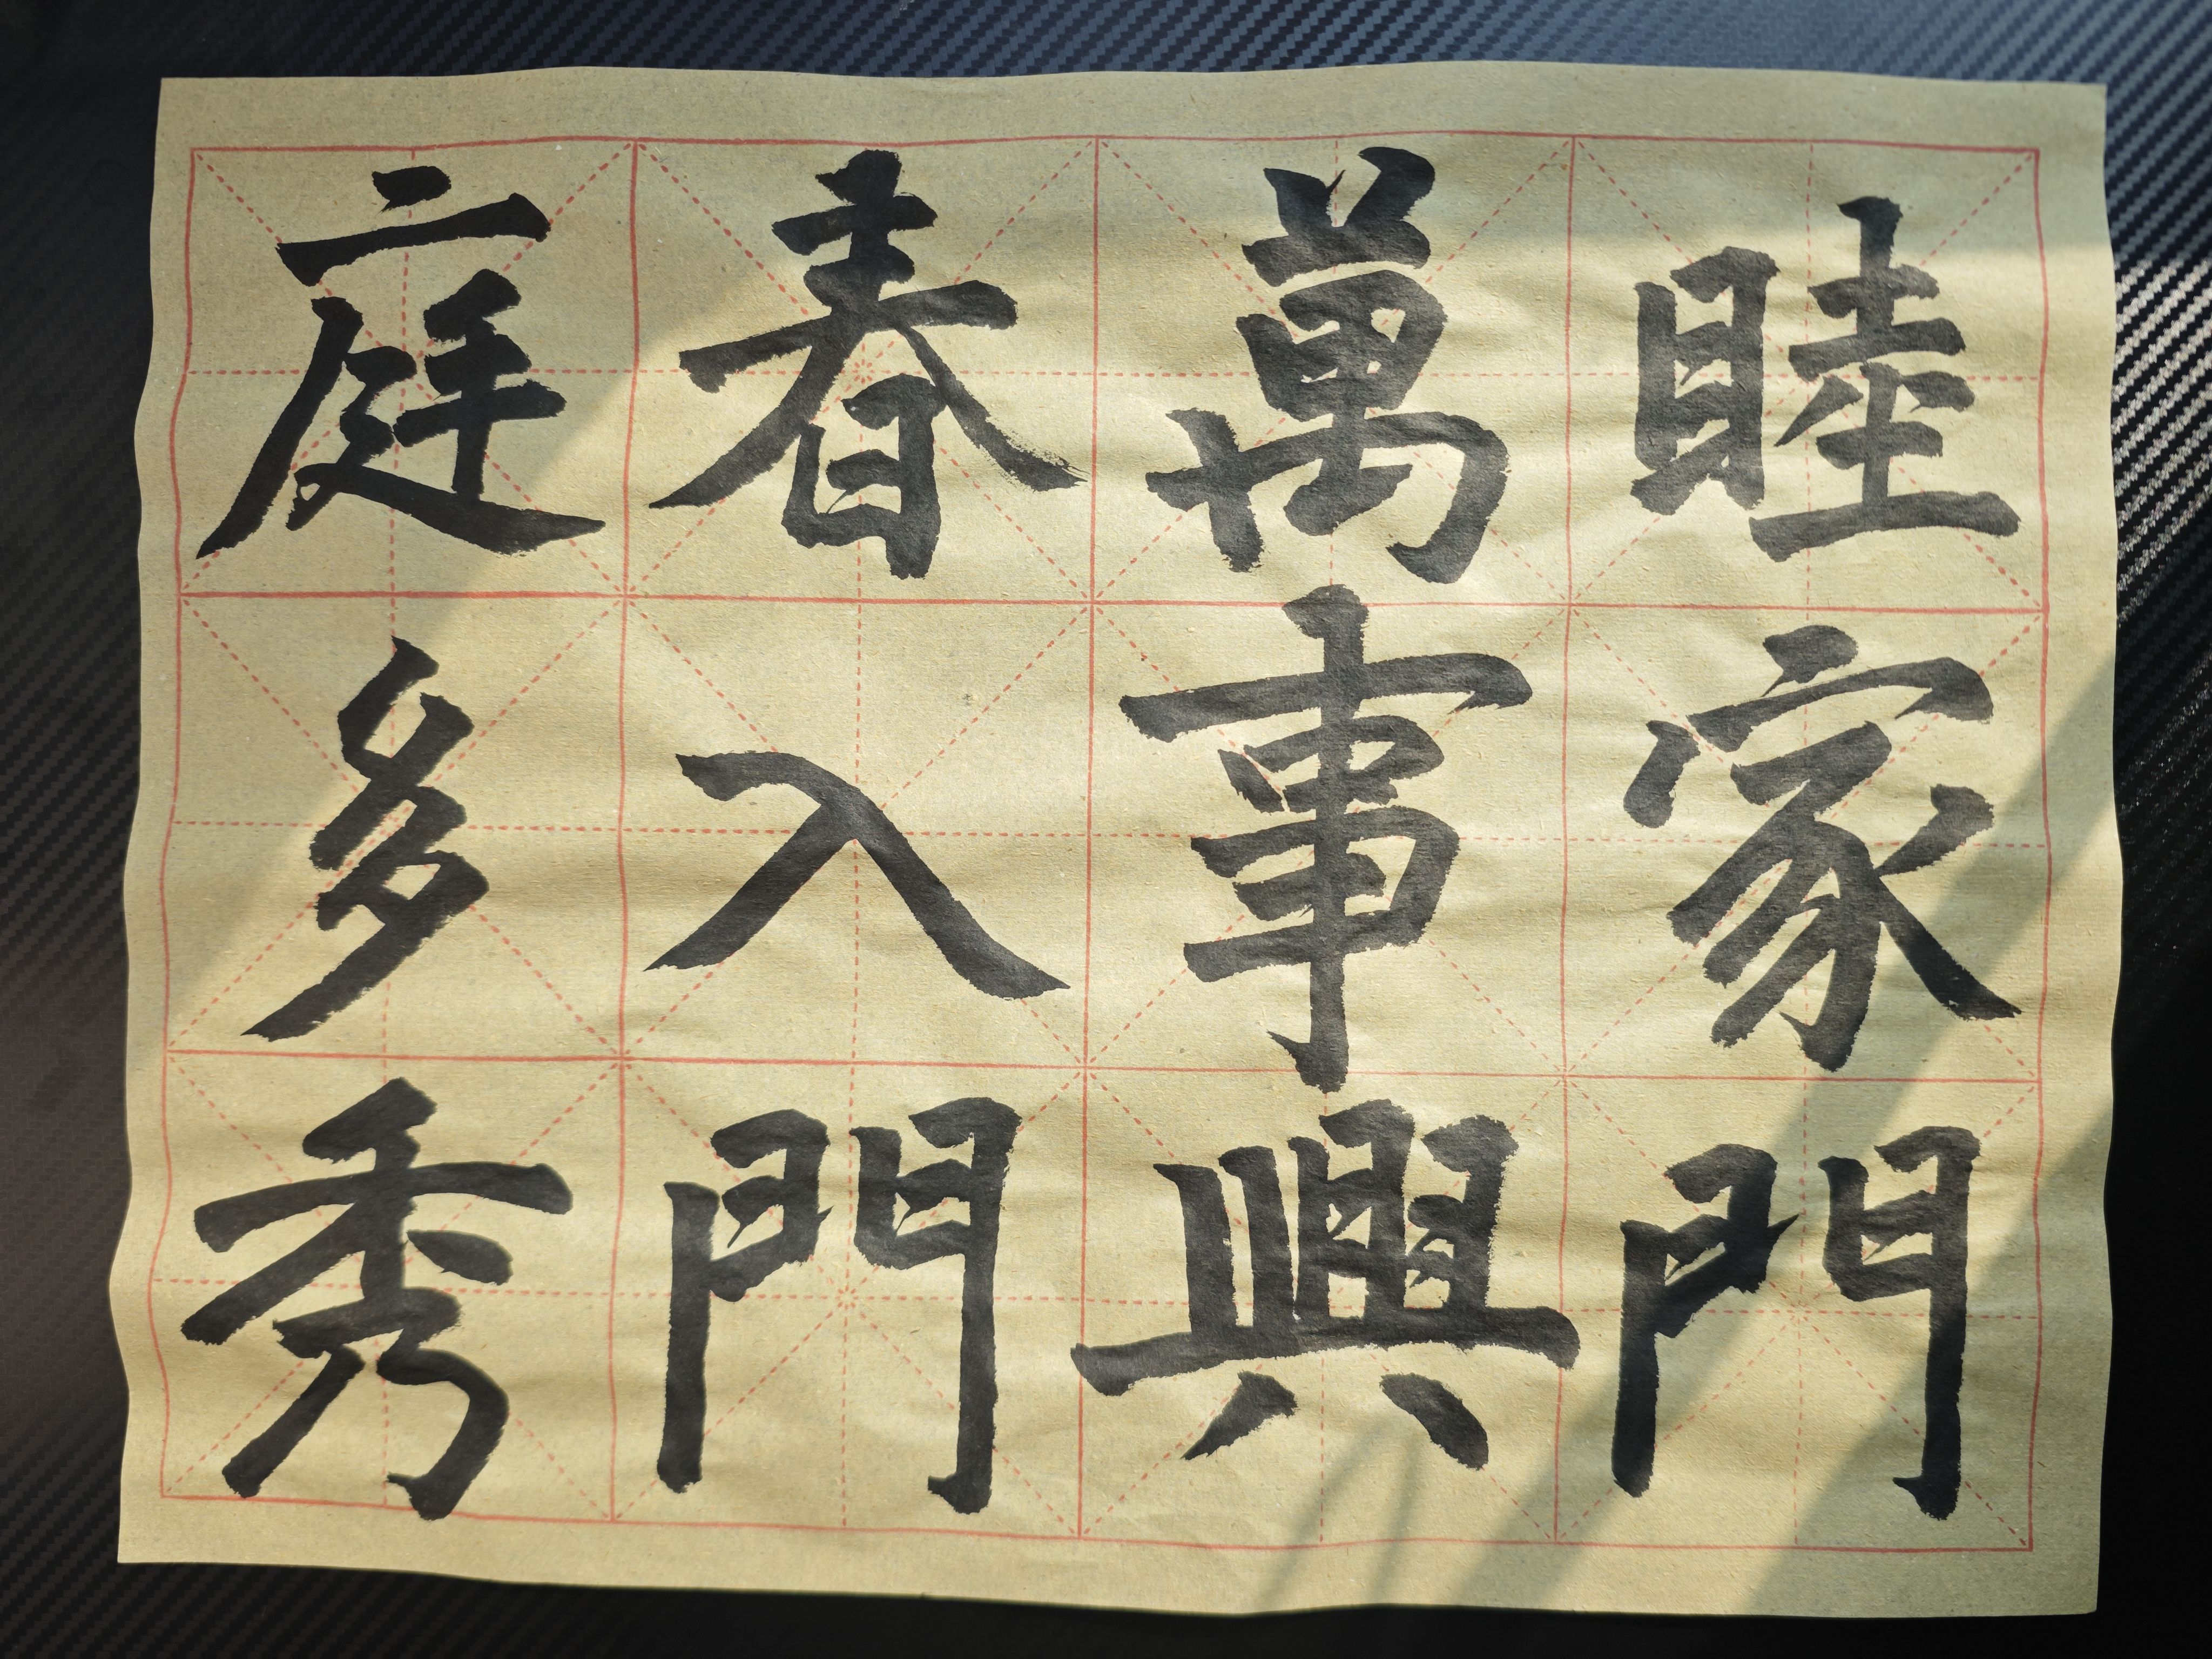 睦家門
萬事興
春入門
庭多秀